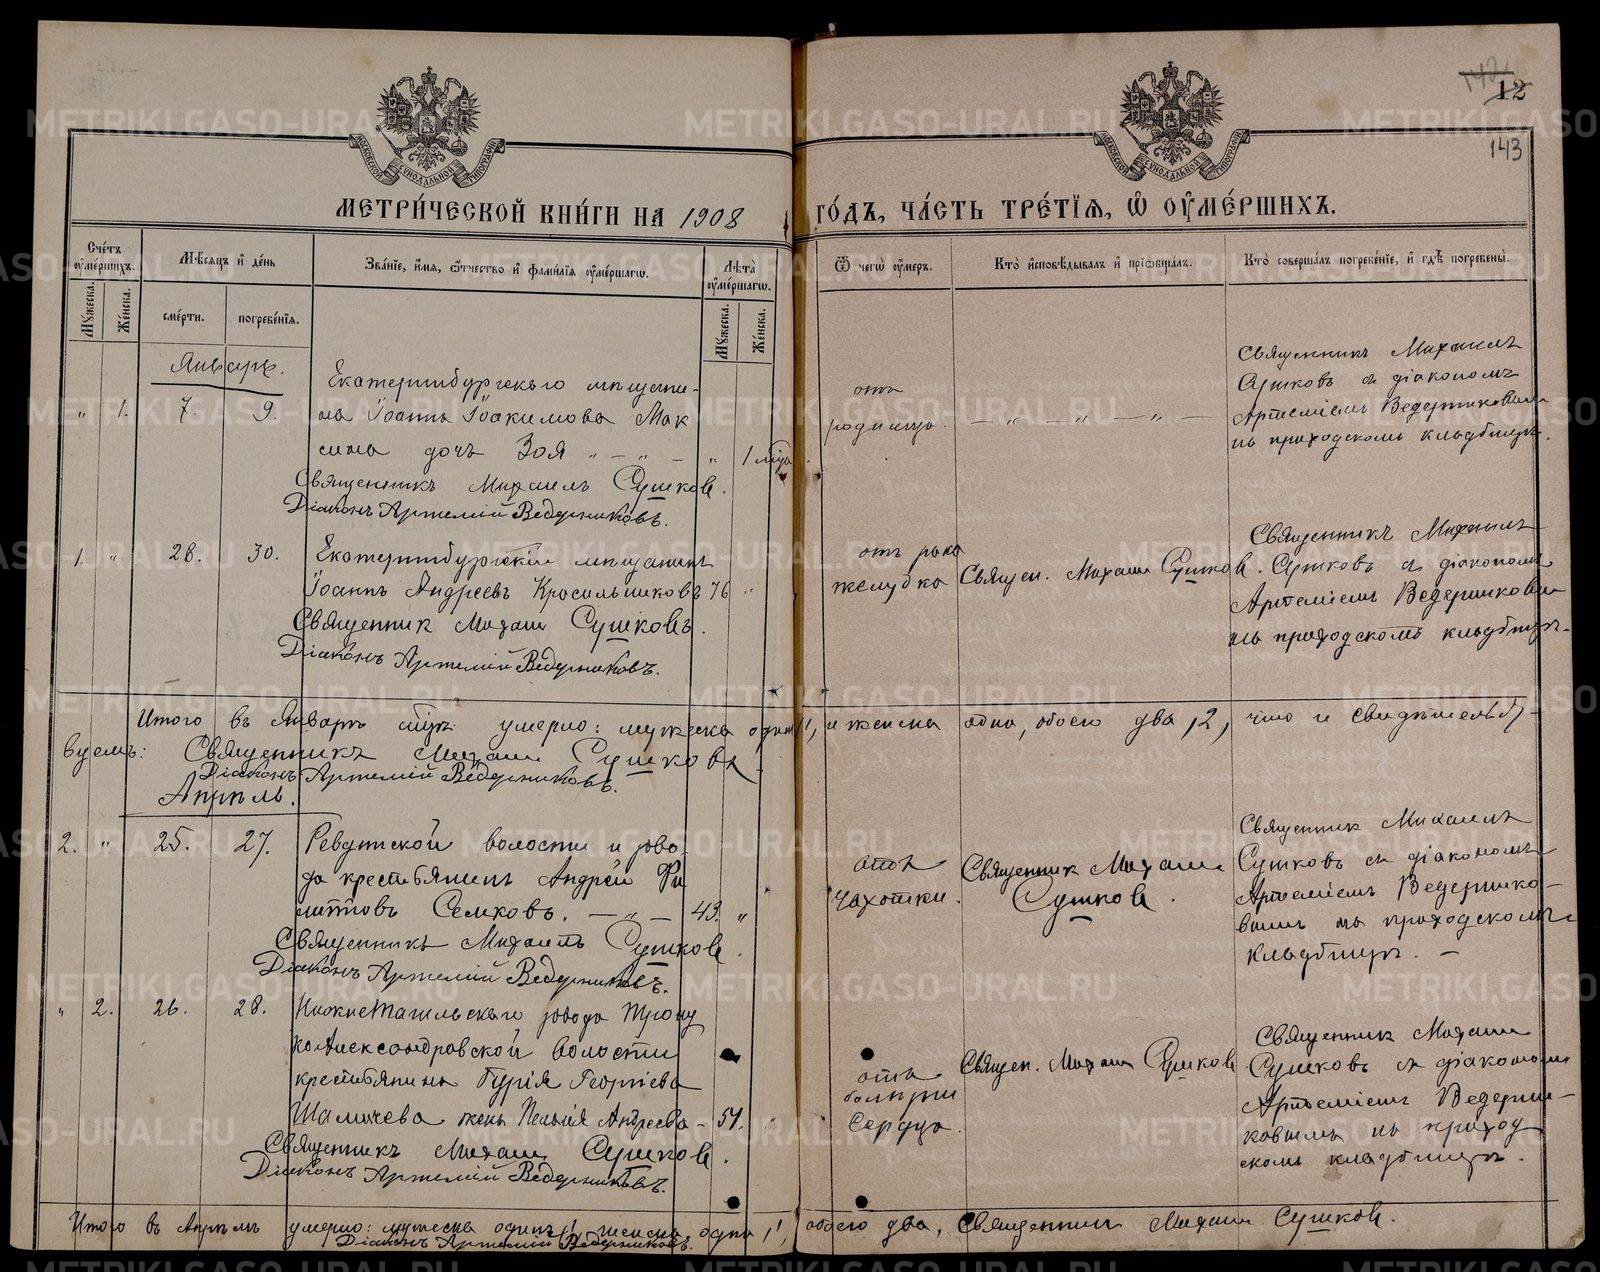 12
143
МЕТРИ́ЧЕСКОЙ КНИ́ГИ НА 1908 ГО́ДЪ, ЧА́СТЬ ТРЕ́ТІѦ, Ѽ ОУМЕ́РШИХЪ.
Сче́тъ оумéршихъ.
Мꙋ́жеска.
Же́нска.
Мѣ́сяцъ и де́нь
смéрти.
погребéнїѧ.
Зва́нїе, и́мѧ, ѻ́тчество и фамѝлїѧ оумéршагѡ.
Лѣ́та оумéршагѡ.
Мꙋ́жеска.
Же́нска.
Ѿ чегѡ̀ оу́меръ.
Кто̀ и҆сповѣ́дывалъ и҆ прїѡбща́лъ.
Кто̀ соверша́лъ погребéнїе, и҆ гдѣ̀ погребены̀.
Январь.
" 1. 7. 9.
Екатеринбургскаго мѣщани-
на Іоанна Іоакимова Мак
сима дочь Зоя " — " — " 1 мѣся
Священникъ Михаилъ Сушковъ.
Діаконъ Артемій Ведерниковъ.
отъ
родимца.
— " — " — " —
Священникъ Михаилъ
Сушковъ съ діакономъ
Артеміемъ Ведерниковым
на приходскомъ кладбищѣ.
1. " 28. 30.
Екатеринбургскій мѣщанинъ
Іоаннъ Андреевъ Красильниковъ 76 "
Священник Михаил Сушковъ.
Діаконъ Артемій Ведерниковъ.
отъ рака
желудка
Священ. Михаил Сушковъ.
Священникъ Михаилъ
Сушковъ съ діакономъ
Артеміемъ Ведерниковым
на приходскомъ кладбищѣ.
Итого въ Январѣ мѣс. умерло: мужеска одинъ 1, и женска одна, обоего два 2, что и свидѣтельст-
вуемъ: Священникъ Михаил Сушковъ
Діаконъ Артемій Ведерниковъ.
Апрѣль.
2. " 25. 27.
Ревдинской волости и заво
да крестьянинъ Андрей Фи
липповъ Семковъ. — " — 43. "
Священникъ Михаилъ Сушковъ.
Діаконъ Артемій Ведерниковъ.
отъ
чахотки.
Священник Михаил
Сушковъ.
Священник Михаилъ
Сушковъ съ діакономъ
Артеміемъ Ведернико-
вымъ на приходскомъ
кладбищѣ. —
" 2. 26. 28.
Нижнетагильскаго завода Троиц
ко Александровской волости
крестьянина Гурія Георгіева
жена Андреева - 51.
Священникъ Михаил Сушковъ.
Діаконъ Артемій Ведерниковъ.
отъ
болѣзни
Сердца.
Священ. Михаил Сушковъ
Священник Михаил
Сушковъ съ діакономъ
Артеміемъ Ведерни-
ковымъ на приход
скомъ кладбищѣ.
Итого въ Апрѣлѣ умерло: мужеска одинъ 1, женска одна 1, обоего два, Священник Михаил Сушковъ.
Діаконъ Артемій Ведерниковъ.
METRIKI.GASO-URAL.RU